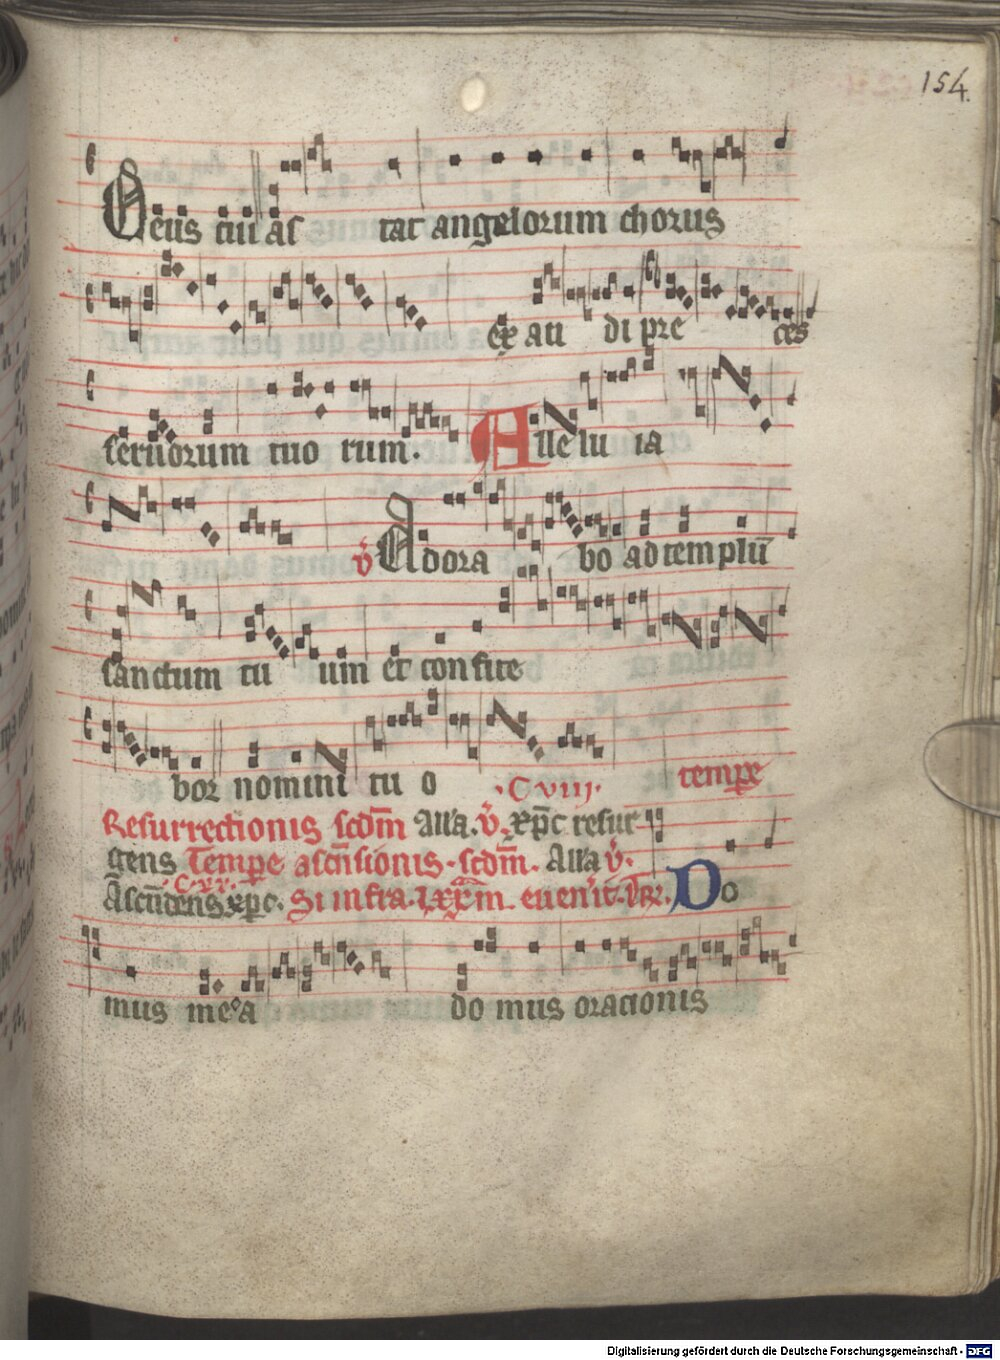 154.
Deus cui aſ tat angelorum chorus
ex au di pre ces
ſeruorum tuo rum. Alle lu ia
v̾ Adora bo ad templū
ſanctum tu um et confite
bor nomini tu o .C viii. tempe
Reſurrectionis ſcd̄m all'a. v̾. xp̄c reſur
gens Tempe aſcēſionis. ſcd̄m. All'a v̾.
C. xx.
Aſcēdens xp̄c. Si infra. lxx̄m. euen'it. Do
mus mea do mus oracionis
Digitalisierung gefördert durch die Deutsche Forschungsgemeinschaft - DFG